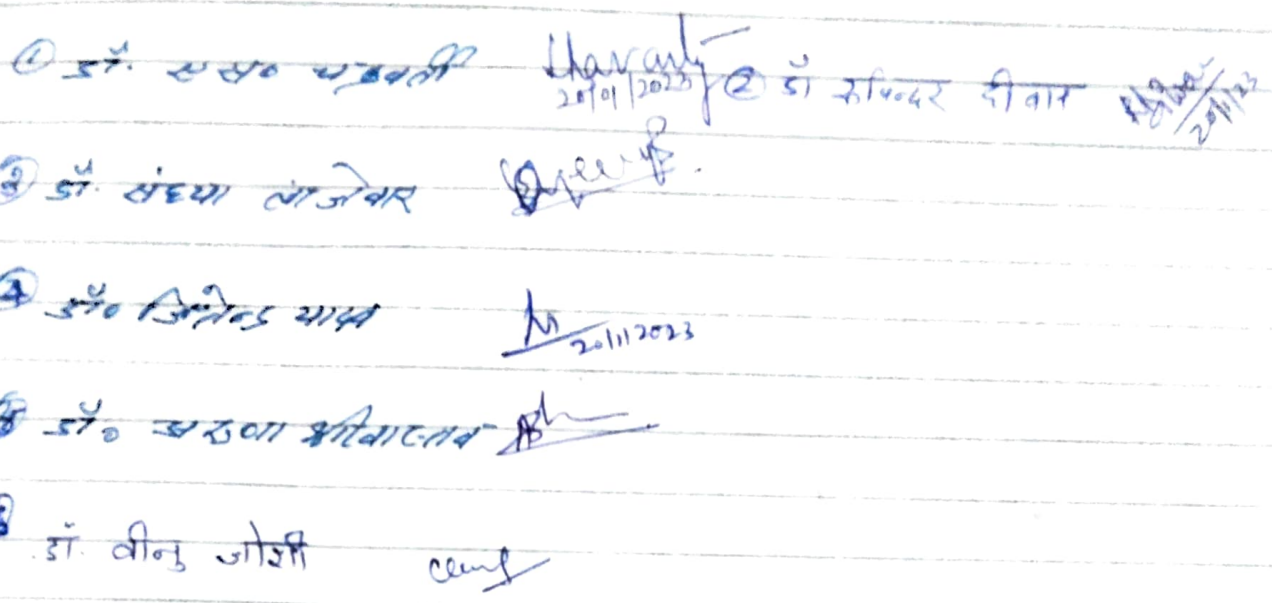 ① डॉ. एस० चक्रवर्ती 20/01/2023 ② डॉ रुपिन्दर दीवान 20/1/23
③ डॉ. संध्या लांजेवार
④ डॉ० जितेन्द्र यादव 20/1/2023
⑤ डॉ० अरुणा श्रीवास्तव
डॉ. वीनु जोशी